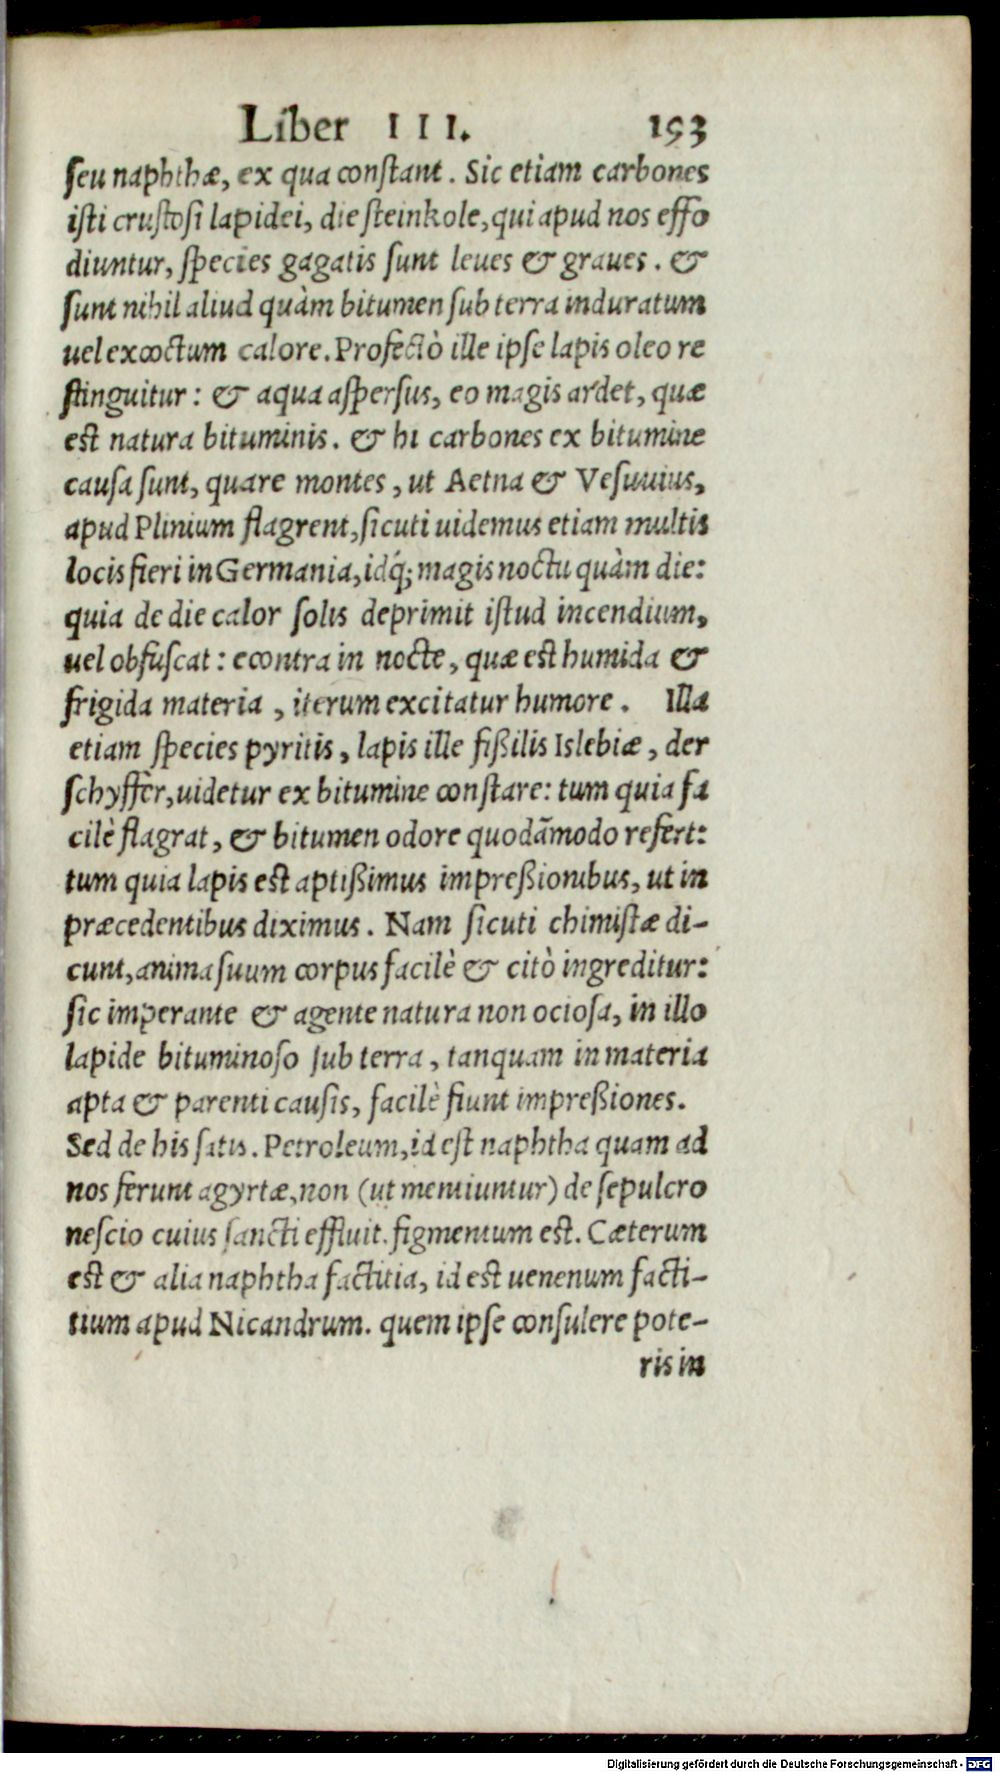 Liber III. 193
seu naphthæ, ex qua constant. Sic etiam carbones
isti crustosi lapidei, die steinkole, qui apud nos effo
diuntur, species gagatis sunt leues & graues. &
sunt nihil aliud quàm bitumen sub terra induratum
uel excoctum calore. Profectò ille ipse lapis oleo re
stinguitur: & aqua aspersus, eo magis ardet, quæ
est natura bituminis. & hi carbones ex bitumine
causa sunt, quare montes, ut Aetna & Vesuuius,
apud Plinium flagrent, sicuti uidemus etiam multis
locis fieri in Germania, idq́; magis noctu quàm die:
quia de die calor solis deprimit istud incendium,
uel obfuscat: econtra in nocte, quæ est humida &
frigida materia, iterum excitatur humore. Illa
etiam species pyritis, lapis ille fißilis Islebiæ, der
schyffer, uidetur ex bitumine constare: tum quia fa
cilè flagrat, & bitumen odore quodãmodo refert:
tum quia lapis est aptißimus impreßionibus, ut in
præcedentibus diximus. Nam sicuti chimistæ di-
cunt, anima suum corpus facilè & citò ingreditur:
sic imperante & agente natura non ociosa, in illo
lapide bituminoso sub terra, tanquam in materia
apta & parenti causis, facilè fiunt impreßiones.
Sed de his satis. Petroleum, id est naphtha quam ad
nos ferunt agyrtæ, non (ut mentiuntur) de sepulcro
nescio cuius sancti effluit. figmentum est. Cæterum
est & alia naphtha factitia, id est uenenum facti-
tium apud Nicandrum. quem ipse consulere pote-
ris in
Digitalisierung gefördert durch die Deutsche Forschungsgemeinschaft - DFG